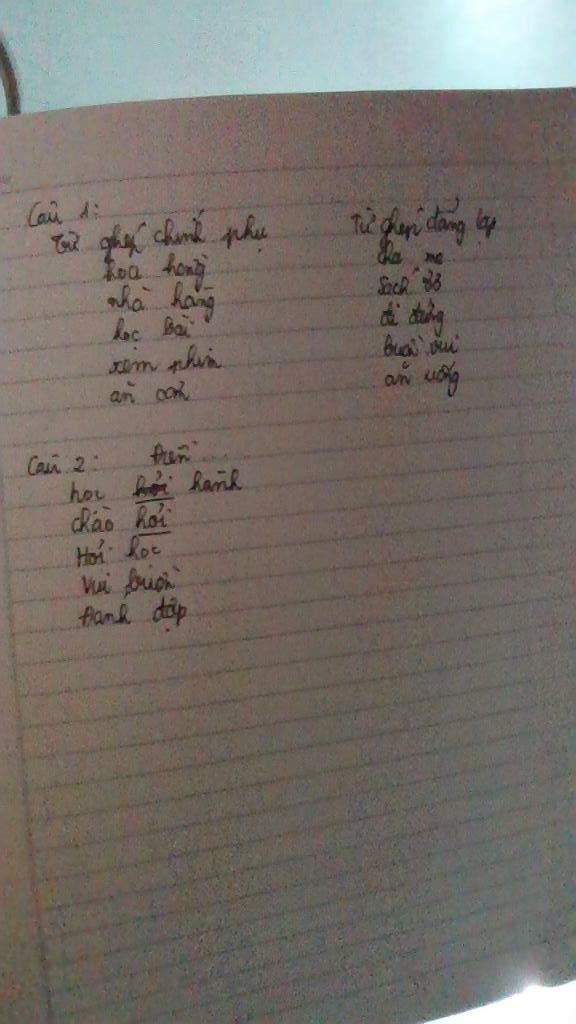 Câu 1:
Từ ghép chính phụ
hoa hồng
nhà hàng
học bài
xem phim
ăn cơm
Từ ghép đẳng lập
cha mẹ
Sách vở
đi đứng
buồn vui
ăn uống
Câu 2: Điền...
học hỏi hành
chào hỏi
Hỏi học
Vui buồn
Đánh đập